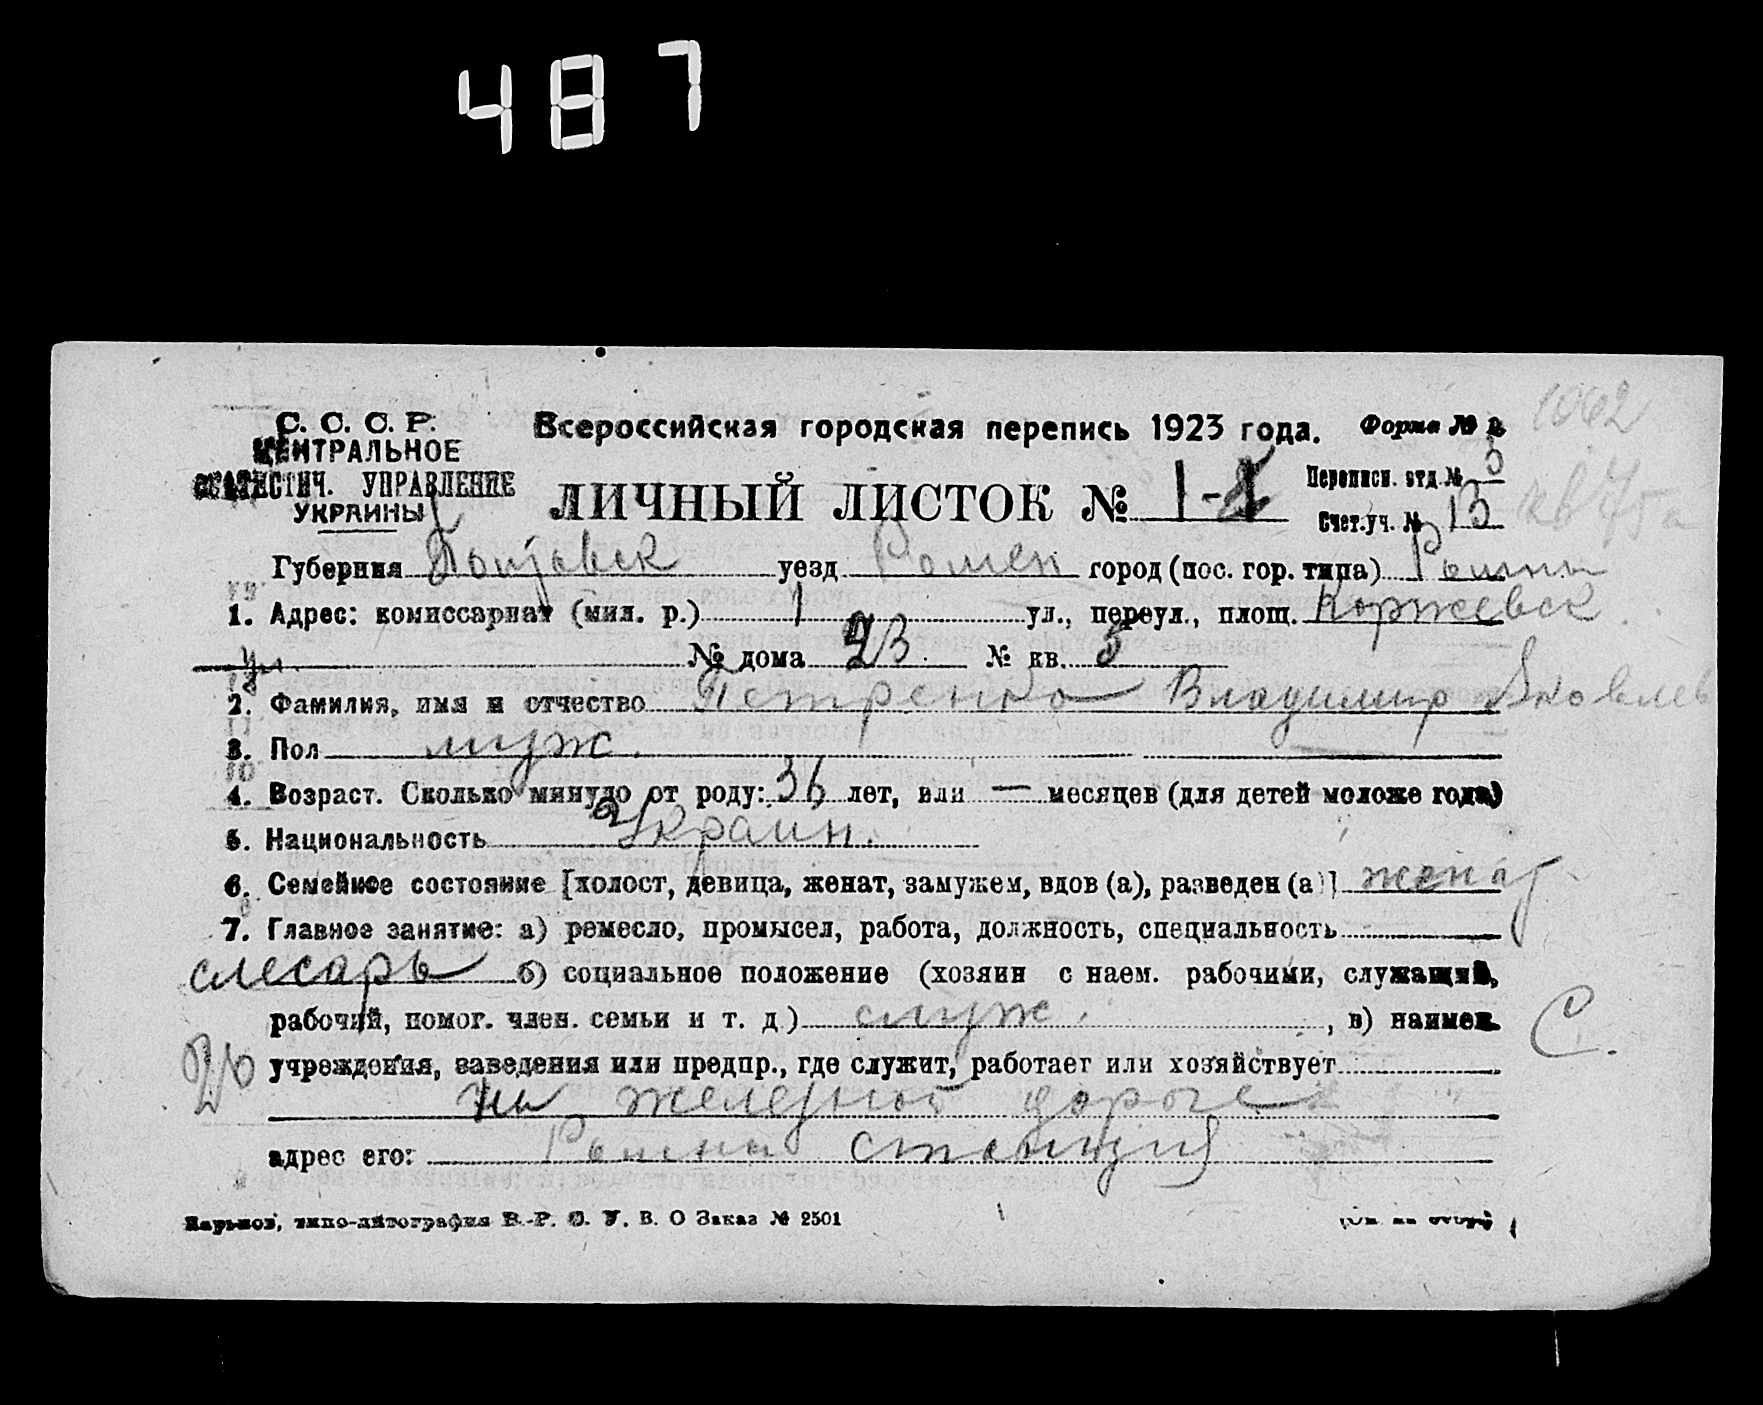 487
С. С. С. Р. Всероссийская городская перепись 1923 года. Форма № 2
1062
ЦЕНТРАЛЬНОЕ
СТАТИСТИЧ. УПРАВЛЕНИЕ
УКРАИНЫ
ЛИЧНЫЙ ЛИСТОК № 1-1
Переписн. отд. № 3
Счет. уч. № 13
Губерния уезд Ромен город (пос. гор. типа) Ромны
1. Адрес: комиссариат (мил. р.) 1 ул., переул., площ. Коржевск
ул. № дома 23 № кв. 5
2. Фамилия, имя и отчество Петренко Владимир Яковлев
3. Пол муж.
4. Возраст. Сколько минуло от роду: 36 лет, или — месяцев (для детей моложе года)
5. Национальность Украин.
6. Семейное состояние [холост, девица, женат, замужем, вдов (а), разведен (а)] женат
7. Главное занятие: а) ремесло, промысел, работа, должность, специальность
слесарь б) социальное положение (хозяин с наем. рабочими, служащий,
рабочий, помог. член. семьи и т. д.) служ. , в) наимен.
С.
учреждения, заведения или предпр., где служит, работает или хозяйствует
на железной дороге
адрес его: Ромны станция
Харьков, типо-литография В.-Р. С. У. В. О Заказ № 2501